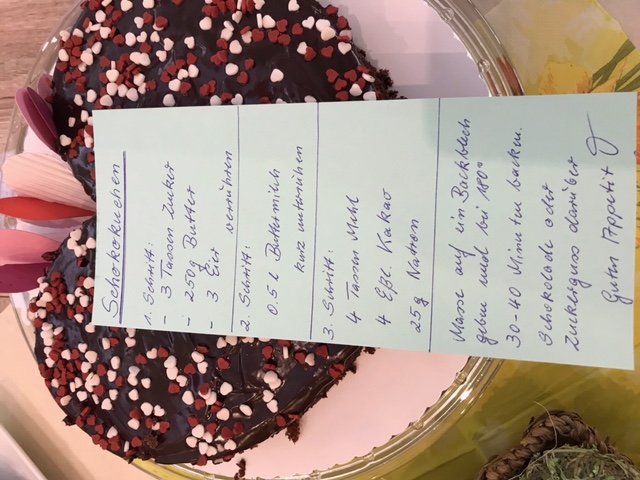 Schokokuchen
1. Schritt:
- 3 Tassen Zucker
- 250g Butter
- 3 Eier
verrühren
2. Schritt:
0.5 l Buttermilch
kurz unterrühren
3. Schritt:
4 Tassen Mehl
4 Eßl. Kakao
25g Natron
Masse auf ein Backblech
geben und bei 180°
30-40 Minuten backen.
Schokolade oder
Zuckerguss darüber
Guten Appetit